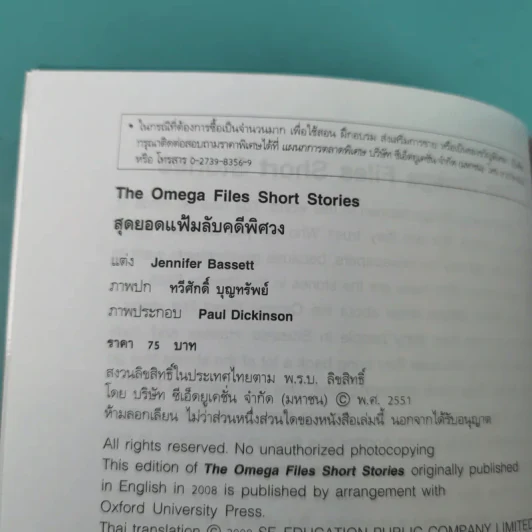 • ในกรณีที่ต้องการซื้อเป็นจำนวนมาก เพื่อใช้สอน ฝึกอบรม ส่งเสริมการขาย หรือเป็นของขวัญพิเศษ
กรุณาติดต่อสอบถามราคาพิเศษได้ที่ แผนกการตลาดพิเศษ บริษัท ซีเอ็ดยูเคชั่น จำกัด (มหาชน)
หรือ โทรสาร 0-2739-8356-9
The Omega Files Short Stories
สุดยอดแฟ้มลับคดีพิศวง
แต่ง Jennifer Bassett
ภาพปก ทวีศักดิ์ บุญทรัพย์
ภาพประกอบ Paul Dickinson
ราคา 75 บาท
สงวนลิขสิทธิ์ในประเทศไทยตาม พ.ร.บ. ลิขสิทธิ์
โดย บริษัท ซีเอ็ดยูเคชั่น จำกัด (มหาชน) © พ.ศ. 2551
ห้ามลอกเลียน ไม่ว่าส่วนหนึ่งส่วนใดของหนังสือเล่มนี้ นอกจากได้รับอนุญาต
All rights reserved. No unauthorized photocopying
This edition of The Omega Files Short Stories originally published
in English in 2008 is published by arrangement with
Oxford University Press.
Thai translation © 2008 SE-EDUCATION PUBLIC COMPANY LIMITED